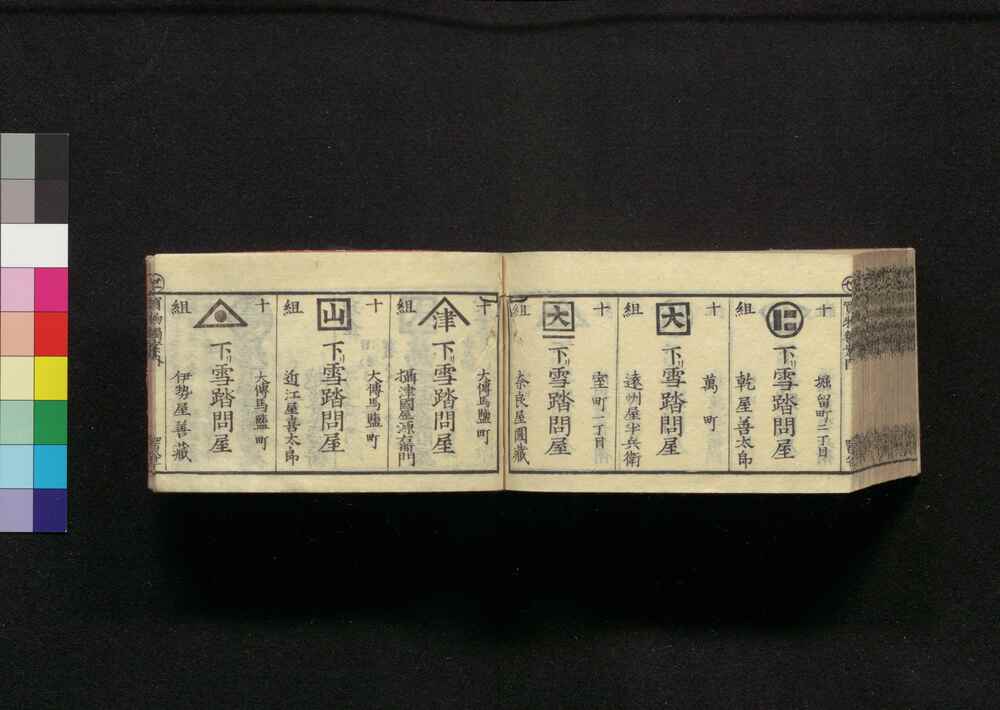 十
組
堀留町二丁目
下リ雪踏問屋
乾屋善太郎
十
組
大
萬町
下リ雪踏問屋
遠州屋半兵衛
十
組
大
室町一丁目
下リ雪踏問屋
奈良屋圓藏
十
組
津
大傳馬鹽町
下リ雪踏問屋
攝津國屋源右衛門
十
組
山
大傳馬鹽町
下リ雪踏問屋
近江屋喜太郎
十
組
大傳馬鹽町
下リ雪踏問屋
伊勢屋善藏